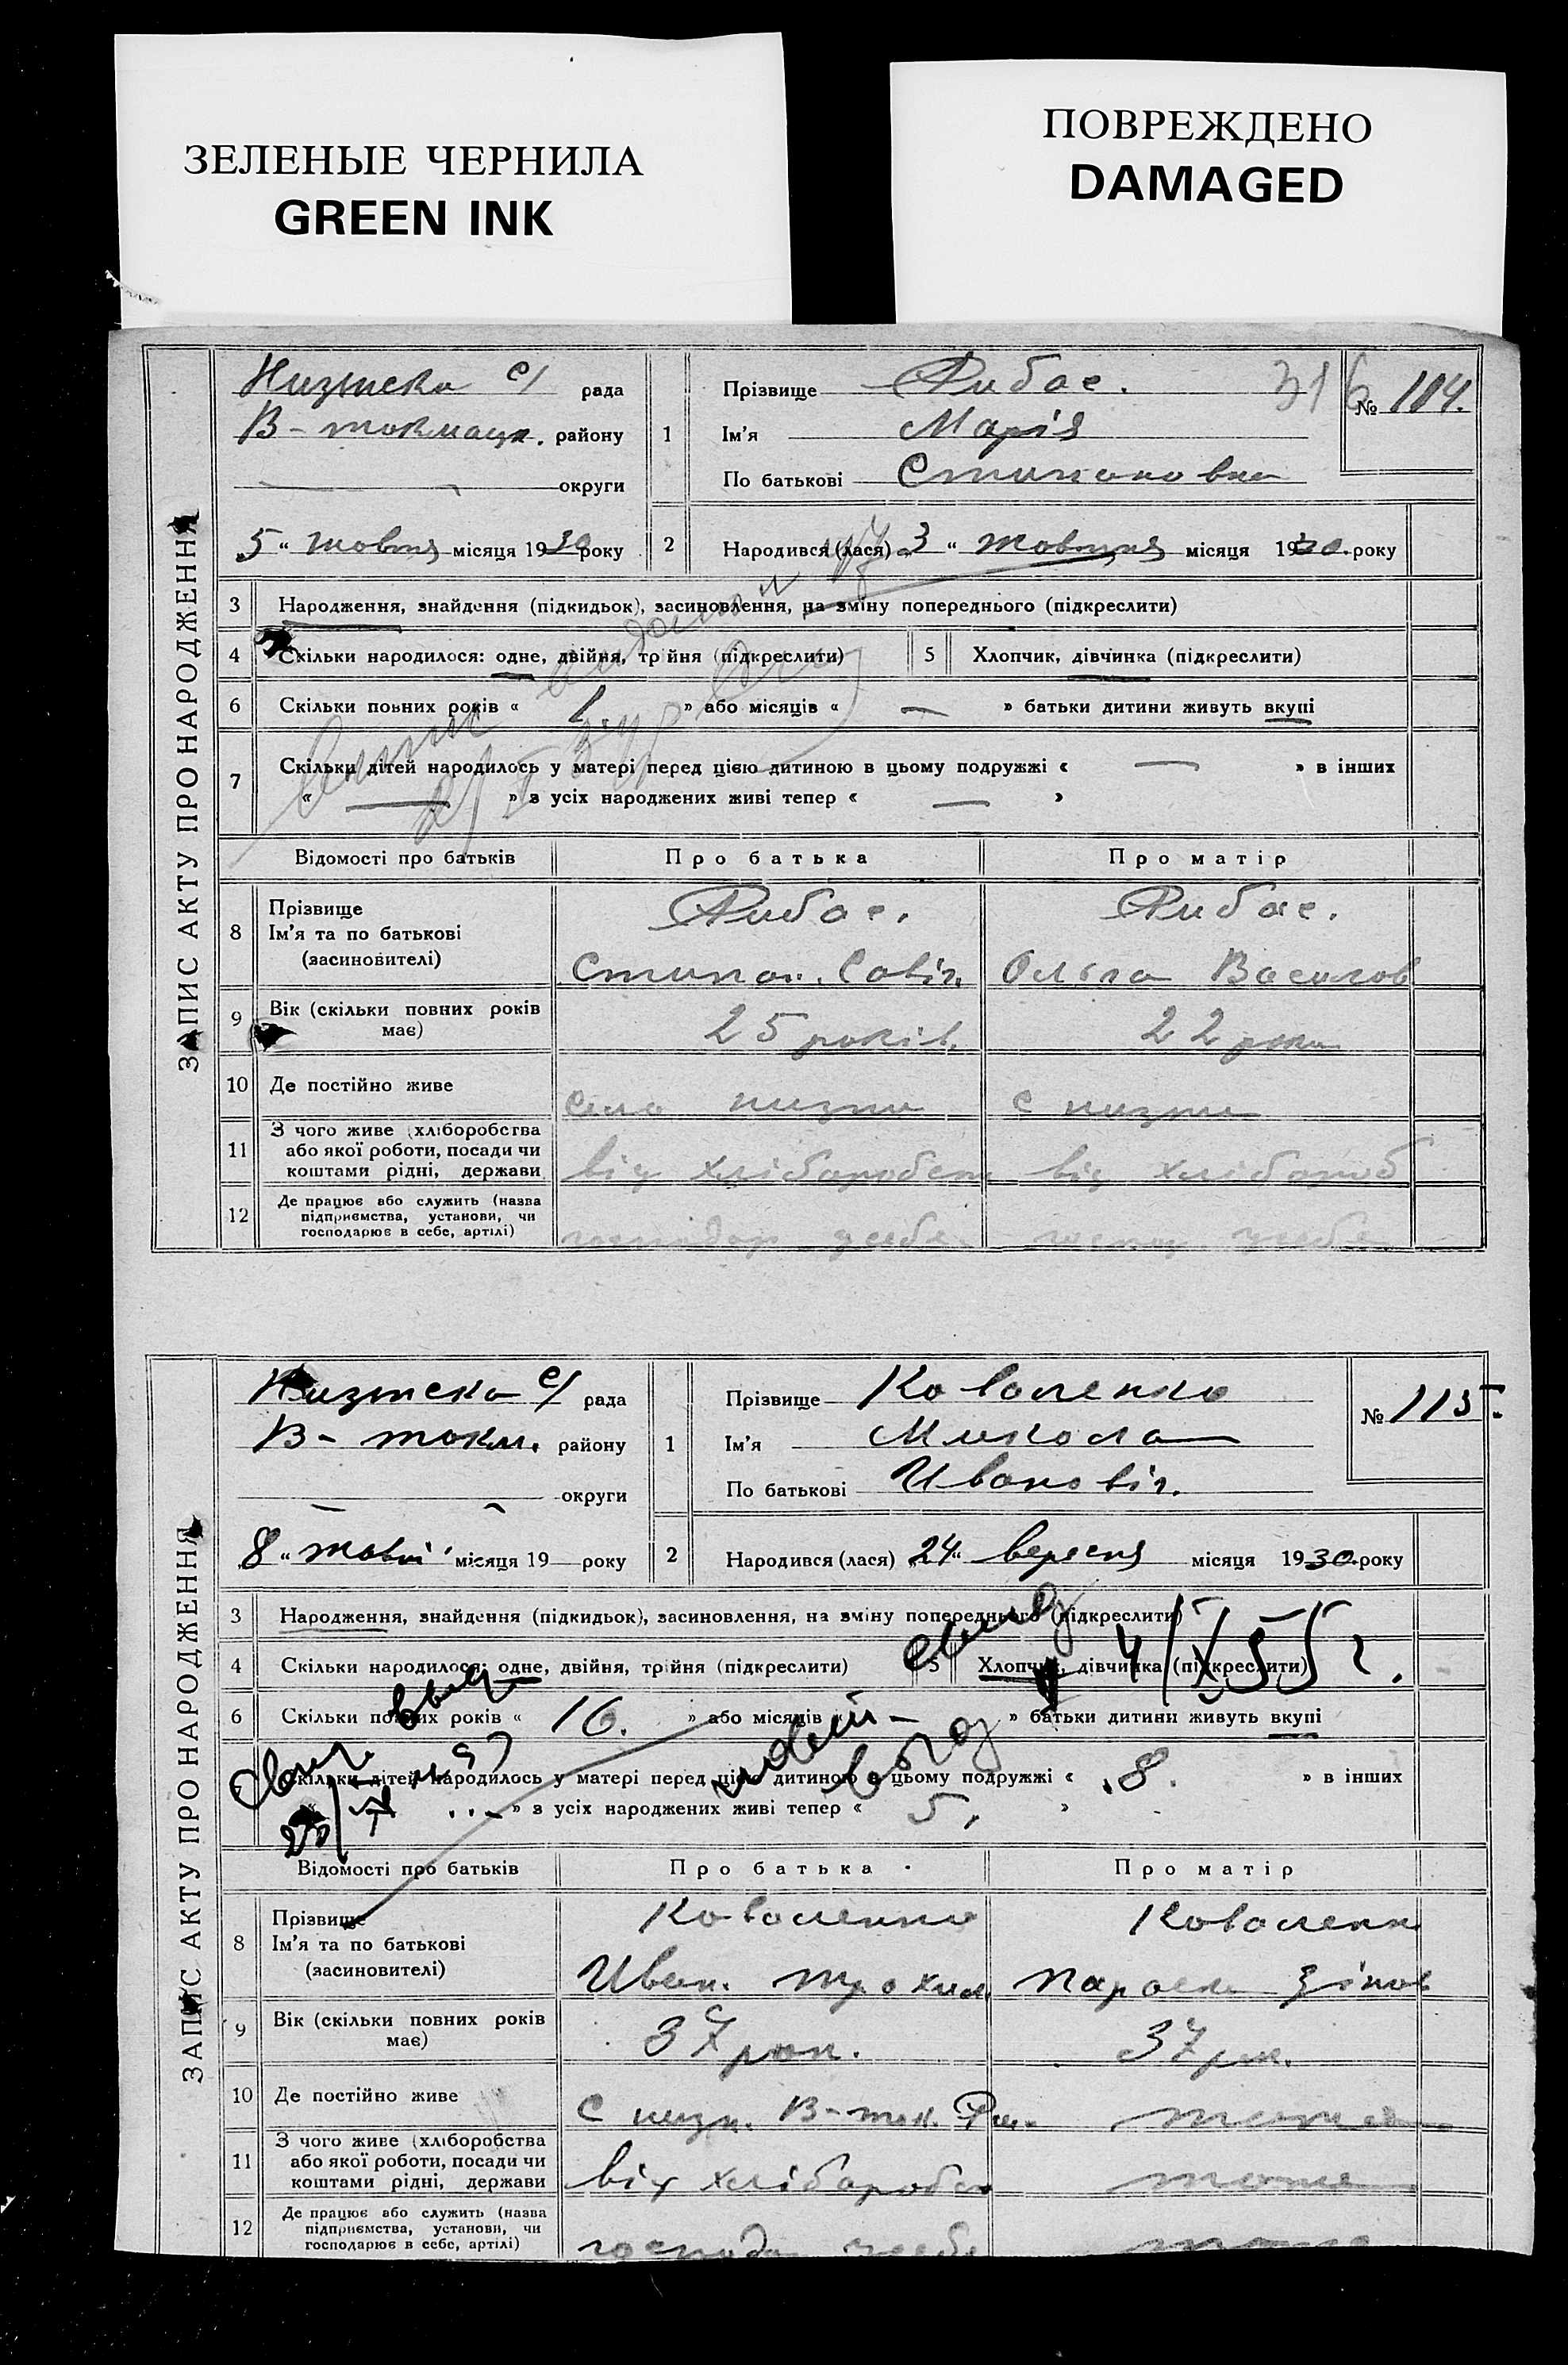 ЗЕЛЕНЫЕ ЧЕРНИЛА
GREEN INK
ПОВРЕЖДЕНО
DAMAGED
ЗАПИС АКТУ ПРО НАРОДЖЕННЯ
Низянска с/ рада
В-токмацк. району
округи
„5“ жовтня місяця 1930 року
1
Прізвище Рибас.
Ім'я Марія
По батькові Степановна
316
№ 114.
2
Народився (лася) „3“ жовтня місяця 1930 року
3 Народження, знайдення (підкидьок), засиновлення, на зміну попереднього (підкреслити)
4 Скільки народилося: одне, двійня, трійня (підкреслити)
5 Хлопчик, дівчинка (підкреслити)
6 Скільки повних років « 1. » або місяців « — » батьки дитини живуть вкупі
7 Скільки дітей народилось у матері перед цією дитиною в цьому подружжі « — » в інших
« — » з усіх народжених живі тепер « — »
Відомості про батьків Про батька Про матір
8 Прізвище Рибас. Рибас.
Ім'я та по батькові
(засиновителі) Степан. Савіч. Ольга Василов
9 Вік (скільки повних років має) 25 років. 22 роки
10 Де постійно живе село низяни с низяни
11 З чого живе (хліборобства або якої роботи, посади чи коштами рідні, держави від хліборобст від хлібороб
12 Де працює або служить (назва підприємства, установи, чи господарює в себе, артілі) господар усебе господ усебе
ЗАПИС АКТУ ПРО НАРОДЖЕННЯ
Низянска с/ рада
В-токм. району
округи
„8“ жовт місяця 19 року
1
Прізвище Коваленко
Ім'я Микола
По батькові Ивановіч.
№ 115.
2
Народився (лася) „24“ вересня місяця 1930 року
3 Народження, знайдення (підкидьок), засиновлення, на зміну попереднього (підкреслити)
4 Скільки народилося: одне, двійня, трійня (підкреслити)
5 Хлопчик, дівчинка (підкреслити)
6 Скільки повних років « 16. » або місяців « — » батьки дитини живуть вкупі
Скільки дітей народилось у матері перед цією дитиною в цьому подружжі « 8. » в інших
» з усіх народжених живі тепер « 5. »
Відомості про батьків Про батька Про матір
8 Прізвище Коваленко Коваленк
Ім'я та по батькові
(засиновителі) Иван. Трохим. Параска Зінов
9 Вік (скільки повних років має) 37 рок. 37 рок.
10 Де постійно живе с низн. В-ток. Рай.
11 З чого живе (хліборобства або якої роботи, посади чи коштами рідні, держави від хліборобст тоже
12 Де працює або служить (назва підприємства, установи, чи господарює в себе, артілі) господар усебе тоже